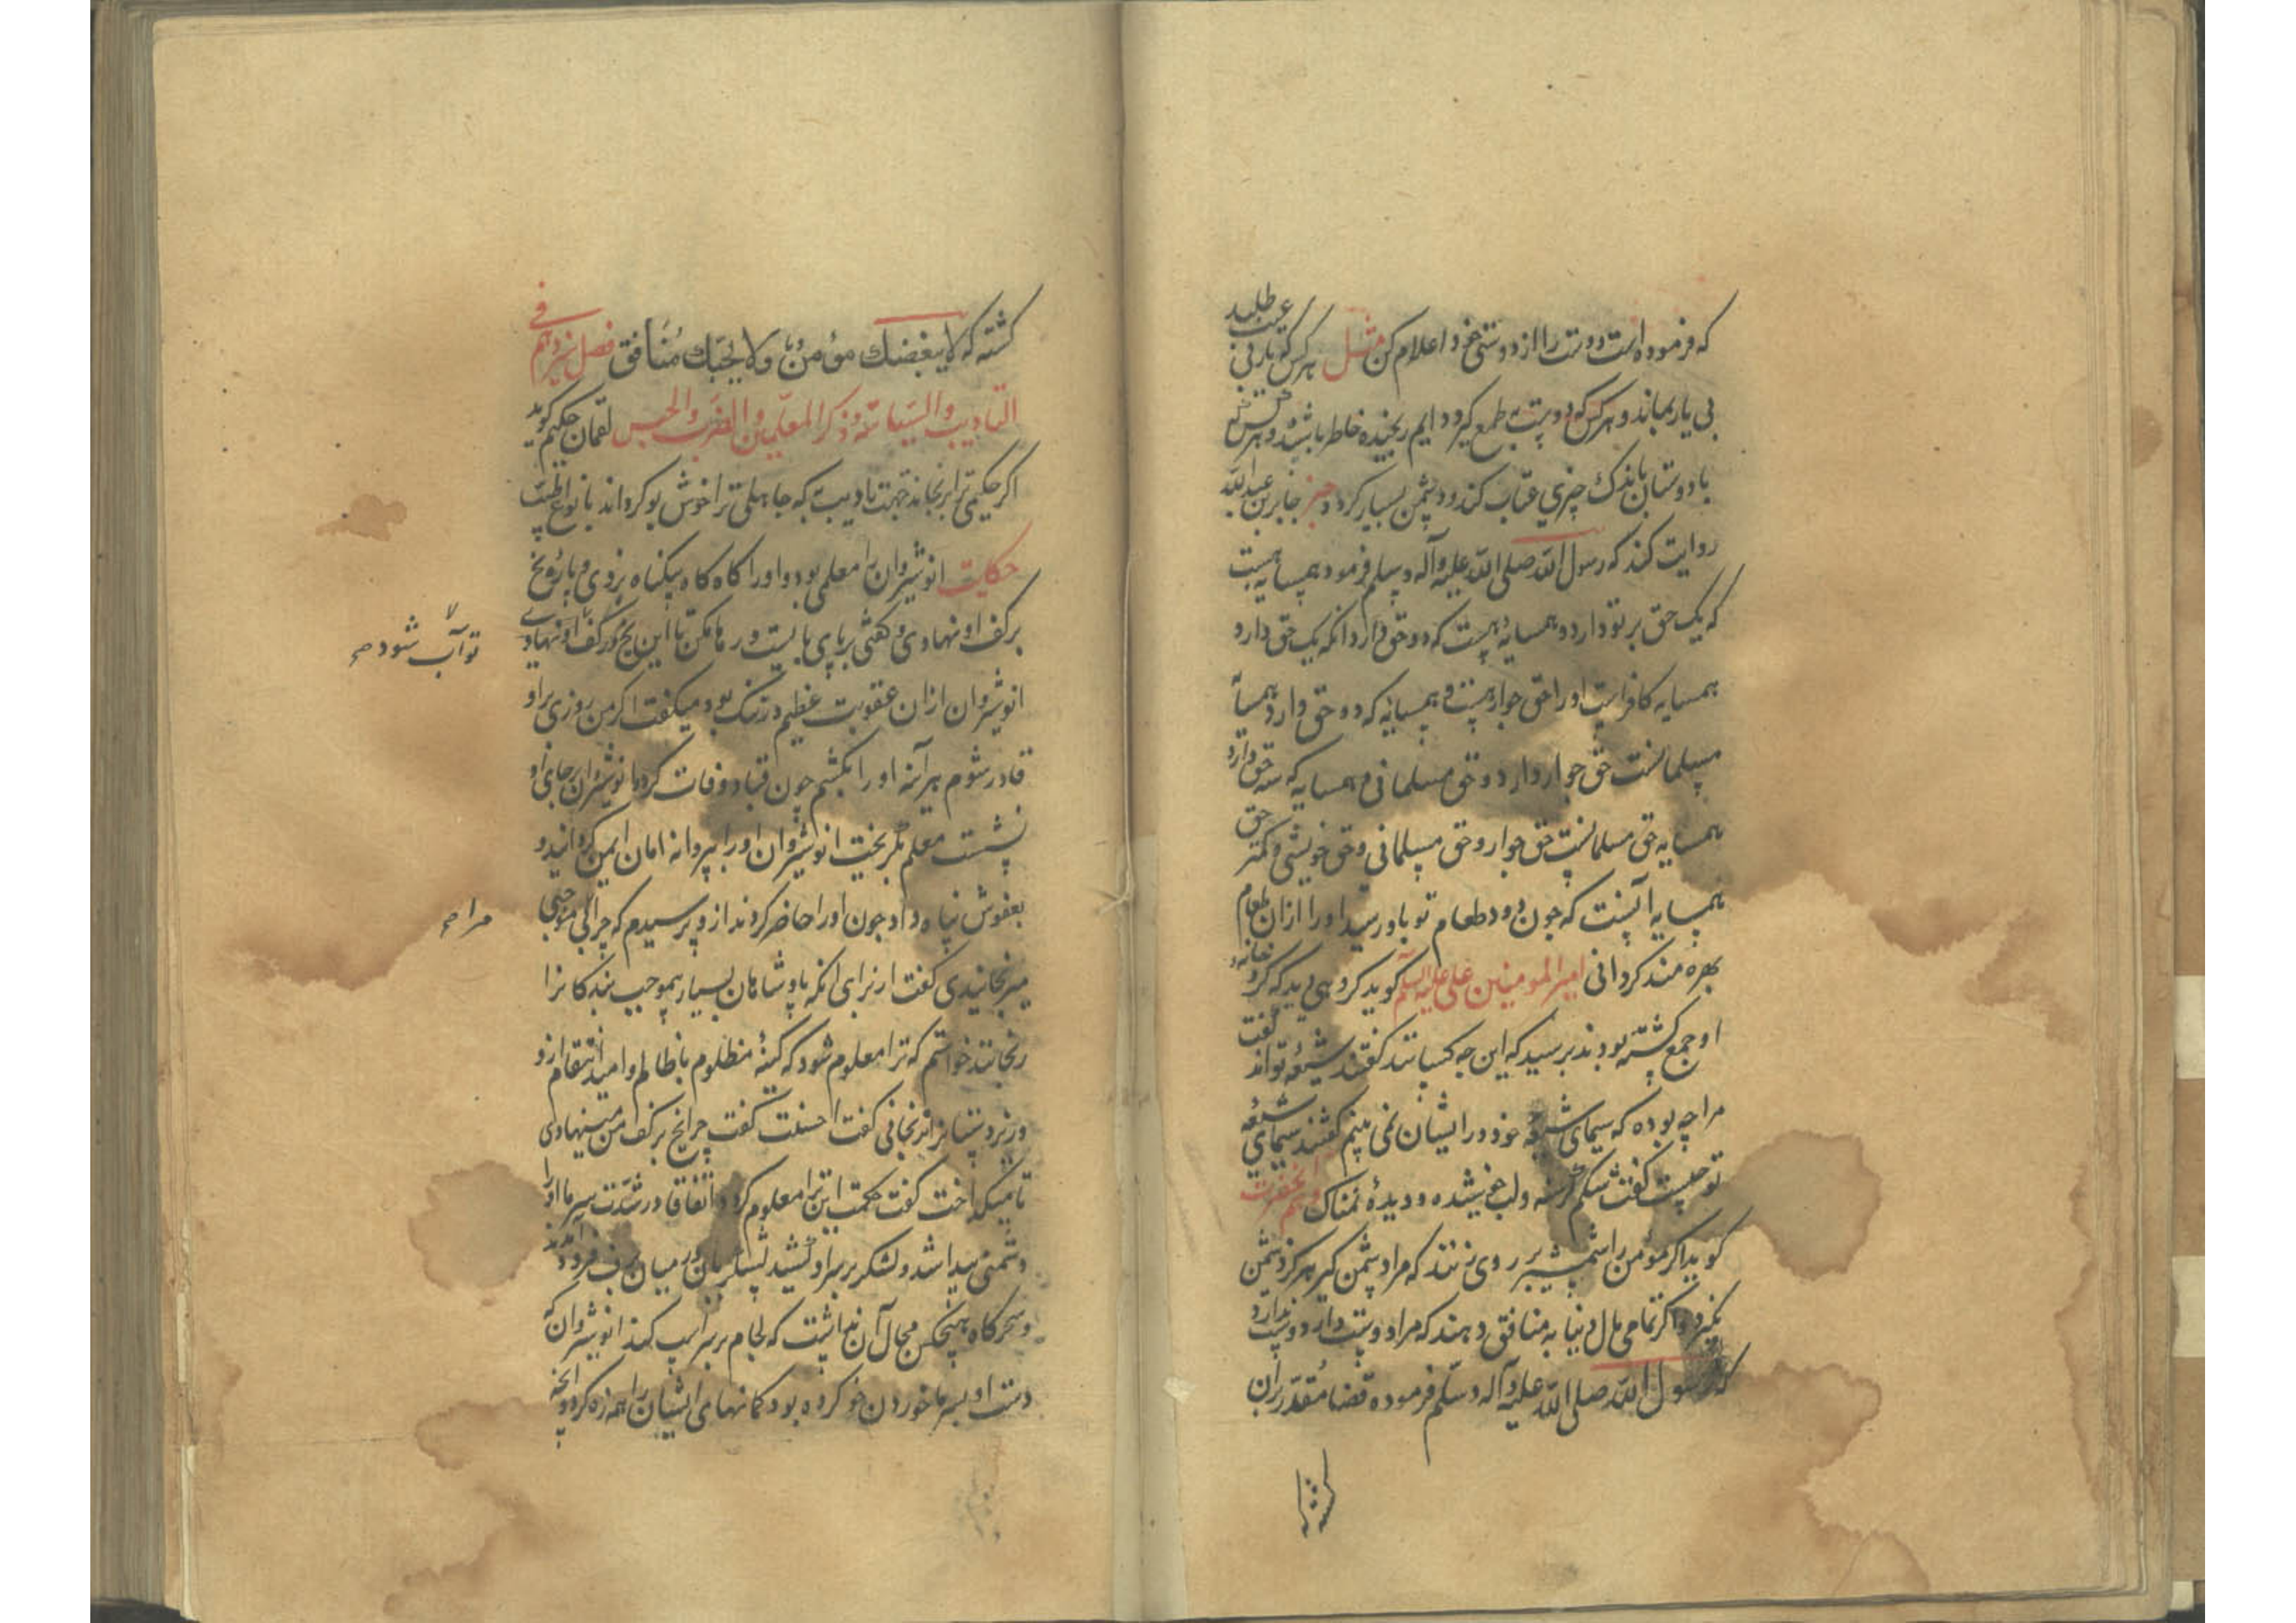 که فرموده است دوست را از دوستی خود اعلام کن مثل هر کس که یار بی عیب طلبد
بی یار بماند و هر کس که دوست بی طمع گیرد دایم رنجیده خاطر باشد و هر کس
با دوستان باندک چیزی عتاب کند دشمن بسیار کرد خبر جابر بن عبد الله
روایت کند که رسول الله صلی الله علیه وآله وسلم فرمود همسایه هست
که یک حق بر تو دارد و همسایه هست که دو حق دارد انکه یک حق دارد
همسایه کافر است او را حق جوار هست و همسایه که دو حق دارد همسایه
مسلمانست حق جوار دارد و حق مسلمانی و همسایه که سه حق دارد
همسایه حق مسلمانست حق جوار و حق مسلمانی و حق خویشی و کمتر حق
همسایه آنست که چون دود طعام تو باو رسد او را ازان طعام
بهره مند کردانی امیر المومنین علی علیه السلم کوید کروهی دید که کرد خانه
او جمع کشته بودند پرسید که این چه کسانند کفتند شیعه تواند کفت
مرا چه بوده که سیمای شیعه خود در ایشان نمی بینم کفتند سیمای شیعه
تو چیست کفت شکم کرسنه ولب خوشیده و دیدهٔ نمناک و هم آنحضرت
کوید اکر مومن را شمشیر بر روی زنند که مرا دشمن کیر هرکز دشمن
نکیرد و اکر تمامی مال دنیا به منافق دهند که مرا دوست دار دوست ندارد
که رسول الله صلی الله علیه وآله وسلم فرموده قضا مقدّر بران
کشته
کشته که لا یبغضک مؤمنٌ ولا یحبّک مُنافق فصل سیزدهم فی
التادیب والسیاسة وذکر المعلمین والضرب والحبس لقمان حکیم کوید
اکر حکیمی ترا برنجاند جهت تادیب به که جاهلی ترا خوش بو کرداند بانواع طیب
حکایت انوشیروان را معلمی بود و او را کاه کاه بیکناه بزدی و پاره یخ
بر کف او نهادی و کفتی بر پای بایست و رها مکن تا این یخ در کف او نهادی
تو آب شود صح
انوشیروان ازان عقوبت عظیم درتنک بود میکفت اکر من روزی بر او
قادر شوم هر آئنه او را بکشم چون قباد وفات کرد و انوشیروان بر جای او
نشست معلم بکریخت انوشیروان او را بپروانه امان ایمن کردانید و
بعفوش پناه داد چون او را حاضر کردند ازو پرسیدم که چرا بی موجبی
مرا صح
میرنجانیدی کفت از برای انکه پادشاهان بسیار بموجب بندکان را
رنجانند خواستم که ترا معلوم شود که کینهٔ مظلوم با ظالم و امید انتقام ازو
کفت احسنت کفت چرا یخ بر کف من مینهادی
تا میکداخت کفت حکمت این ترا معلوم کردد اتفاقا در شدت سرما او را
دشمنی پیدا شد و لشکر بر سر او کشید لشکریان در میان برف فرود آمدند
و سحرکاه هیچکس مجال آن نداشت که لجام بر سر اسپ کند انوشیروان که
دست او بسرما خوردن خو کرده بود کمانهای ایشان را همه زه کرد